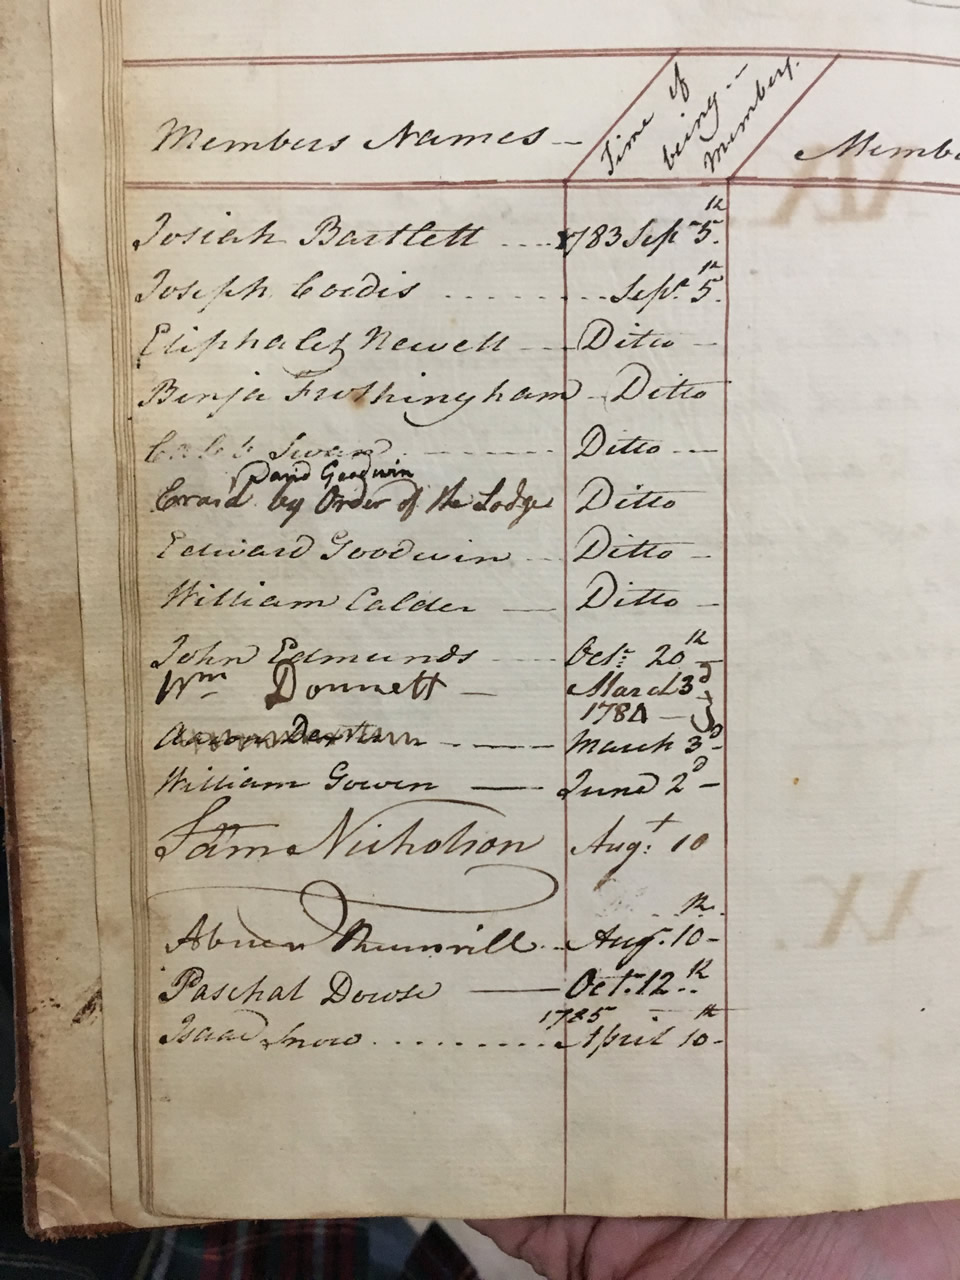 Members Names - Time of being -- Members. Membe
Josiah Bartlett .... 1783 Sepr 5th.
Joseph Cordis ......... Sepr. 5th.
Eliphalet Newell -- Ditto -
Benja Frothingham - Ditto
Caleb Swan ------ Ditto --
David Goodwin
Erasd by Order of the Lodge Ditto
Edward Goodwin -- Ditto -
William Calder -- Ditto -
John Edmunds -- Octr: 20th
Wm Donnett - March 3d
1784
Aaron Dexter - -- March 3d -
William Gowen -- June 2d -
Sam Nicholson Augt: 10
Abner Rumrill -- Augt. 10th -
Paschal Dowse -- Octr. 12th --
1785
Isaac Snow .......... April 10th -